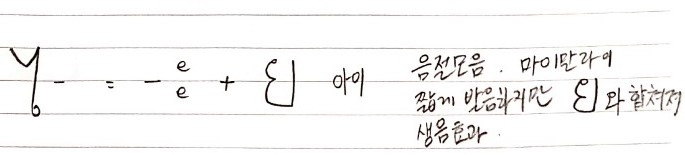 ไ- = -ะ + ย 아이
음절모음. 마이말라이
짧게 발음하지만 ย와 합쳐져
생음효과.